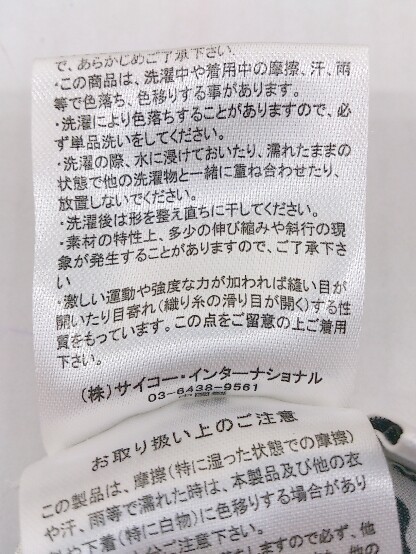 で、あらかじめご了承下さい。
・この商品は、洗濯中や着用中の摩擦、汗、雨
等で色落ち、色移りする事があります。
・洗濯により色落ちすることがありますので、必
ず単品洗いをしてください。
・洗濯の際、水に浸けておいたり、濡れたままの
状態で他の洗濯物と一緒に重ね合わせたり、
放置しないでください。
・洗濯後は形を整え直ちに干してください。
・素材の特性上、多少の伸び縮みや斜行の現
象が発生することがありますので、ご了承下さ
い
・激しい運動や強度な力が加われば縫い目が
開いたり目寄れ(織り糸の滑り目が開く)する性
質をもっています。この点をご留意の上ご着用
下さい。
(株)サイコー・インターナショナル
03-6438-9561
お取り扱い上のご注意
この製品は、摩擦(特に湿った状態での摩擦)
や汗、雨等で濡れた時は、本製品及び他の衣
や下着(特に白物)に色移りする場合があり
しますので必ず、他